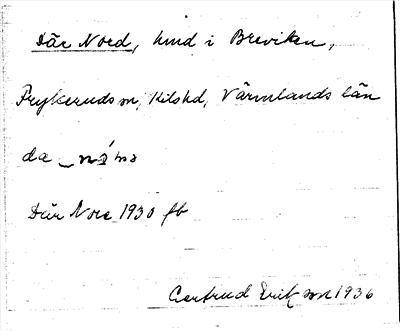 Där Nord, hmd i Breviken,
Frykeruds sn, Kils hd, Värmlands län
da
Där Nore 1930 fb
Gertrud Eriksson 1936